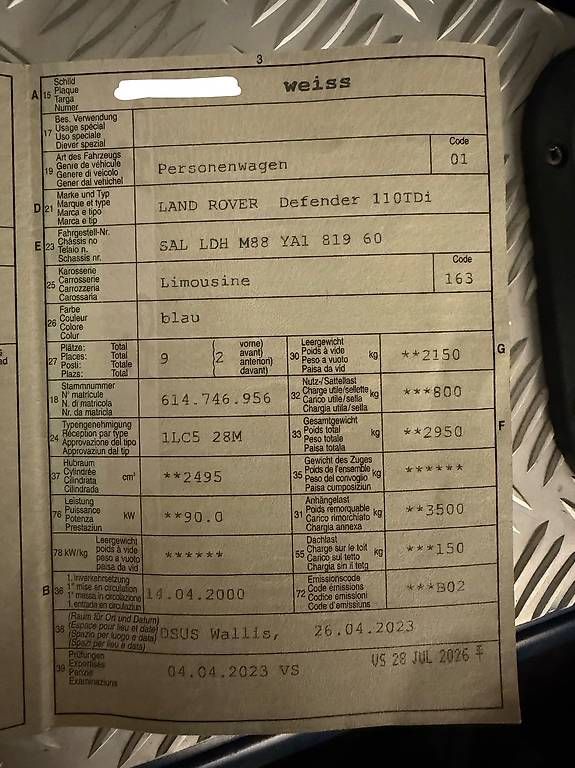 3
A 15 Schild
Plaque
Targa
Numer
weiss
17 Bes. Verwendung
Usage spécial
Uso speciale
Diever spezial
19 Art des Fahrzeugs
Genre de véhicule
Genere di veicolo
Gener dal vehichel
Personenwagen
Code
01
D 21 Marke und Typ
Marque et type
Marca e tipo
Marca e tip
LAND ROVER Defender 110TDi
E 23 Fahrgestell-Nr.
Châssis no
Telaio n.
Schassis nr.
SAL LDH M88 YA1 819 60
25 Karosserie
Carrosserie
Carrozzeria
Carossaria
Limousine
Code
163
26 Farbe
Couleur
Colore
Colur
blau
27 Plätze: Total
Places: Total
Posti: Totale
Plazs: Total
9 (2 vorne)
avant)
anteriori)
davant)
30 Leergewicht
Poids à vide kg
Peso a vuoto
Paisa da vid
**2150
G
18 Stammnummer
N° matricule
N. di matricola
Nr. da matricla
614.746.956
32 Nutz-/Sattellast
Charge utile/sellette kg
Carico utile/sella
Chargia utila/sella
***800
24 Typengenehmigung
Réception par type
Approvazione del tipo
Approvaziun dal tip
1LC5 28M
33 Gesamtgewicht
Poids total kg
Peso totale
Paisa totala
**2950
F
37 Hubraum
Cylindrée cm³
Cilindrata
Cilindrada
**2495
35 Gewicht des Zuges
Poids de l'ensemble kg
Peso del convoglio
Paisa cumposiziun
******
76 Leistung
Puissance kW
Potenza
Prestaziun
**90.0
31 Anhängelast
Poids remorquable kg
Carico rimorchiato
Chargia annexa
**3500
78 kW/kg Leergewicht
poids à vide
peso a vuoto
paisa da vid
******
55 Dachlast
Charge sur le toit kg
Carico sul tetto
Chargia sin il tetg
***150
B 36 1. Inverkehrsetzung
1re mise en circulation
1a messa in circolazione
1. entrada en circulaziun
14.04.2000
72 Emissionscode
Code émissions
Codice emissioni
Code d'emissiuns
***B02
38 (Raum für Ort und Datum)
(Espace pour lieu et date)
(Spazio per luogo e data)
(Spazi per lieu e data)
DSUS Wallis, 26.04.2023
39 Prüfungen
Expertises
Perizie
Examinaziuns
04.04.2023 VS
VS 28 JUL 2026